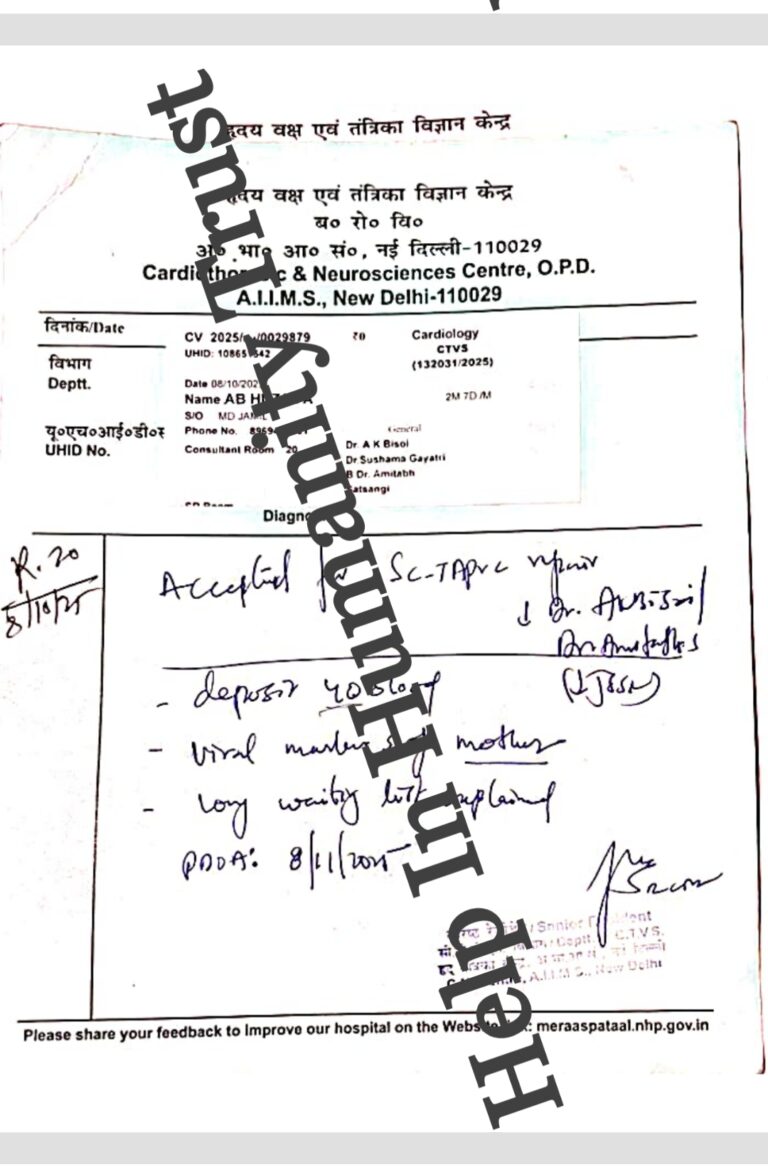 हृदय वक्ष एवं तंत्रिका विज्ञान केन्द्र
हृदय वक्ष एवं तंत्रिका विज्ञान केन्द्र
ब० रो० वि०
अ० भा० आ० सं०, नई दिल्ली-110029
Cardiothoracic & Neurosciences Centre, O.P.D.
A.I.I.M.S., New Delhi-110029
दिनांक/Date
CV 2025/ /0029879 ₹0 Cardiology
UHID: CTVS
(132031/2025)
विभाग
Deptt.
Date 08/10/202
Name AB 2M 7D /M
S/O MD
Phone No. General
यू०एच०आई०डी०
UHID No.
Consultant Room 20
Dr. A K Bisoi
Dr.Sushama Gayatri
B Dr. Amitabh
Satsangi
Diagno
R. 20
8/10/25
Accepted for SC-TAPVC repair
↓ Dr. AK Bisoi/
Dr. Amitabh S
- deposit
- viral markers of mother
- long waiting list explained
PDOA: 8/11/2025
/Senior Resident
/Deptt. C.T.V.S.
A.I.I.M.S., New Delhi
Please share your feedback to Improve our hospital on the : meraaspataal.nhp.gov.in
Help In Humanity Trust